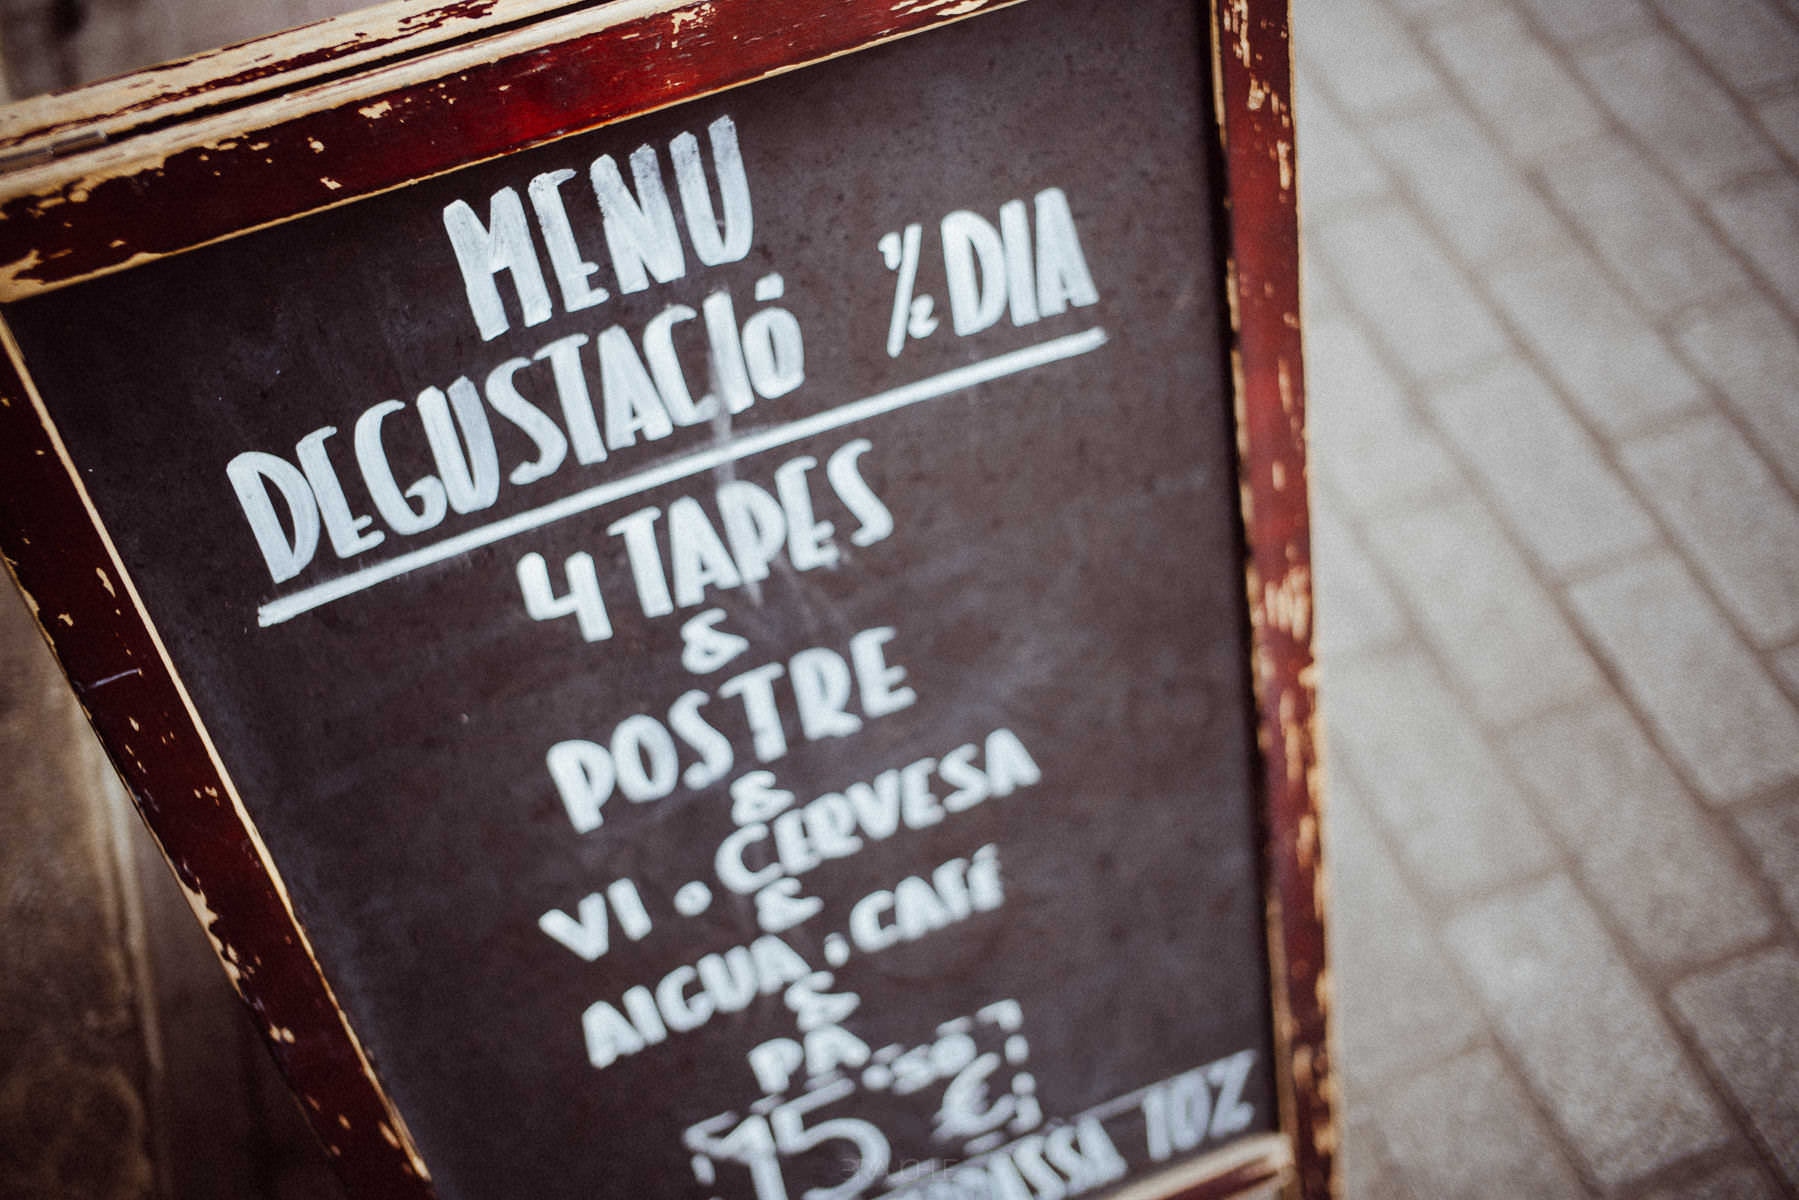 MENU
DEGUSTACIÓ ½ DIA
4 TAPES
&
POSTRE
&
VI o CERVESA
&
AIGUA i CAFÉ
&
PA
15'50 €
10%